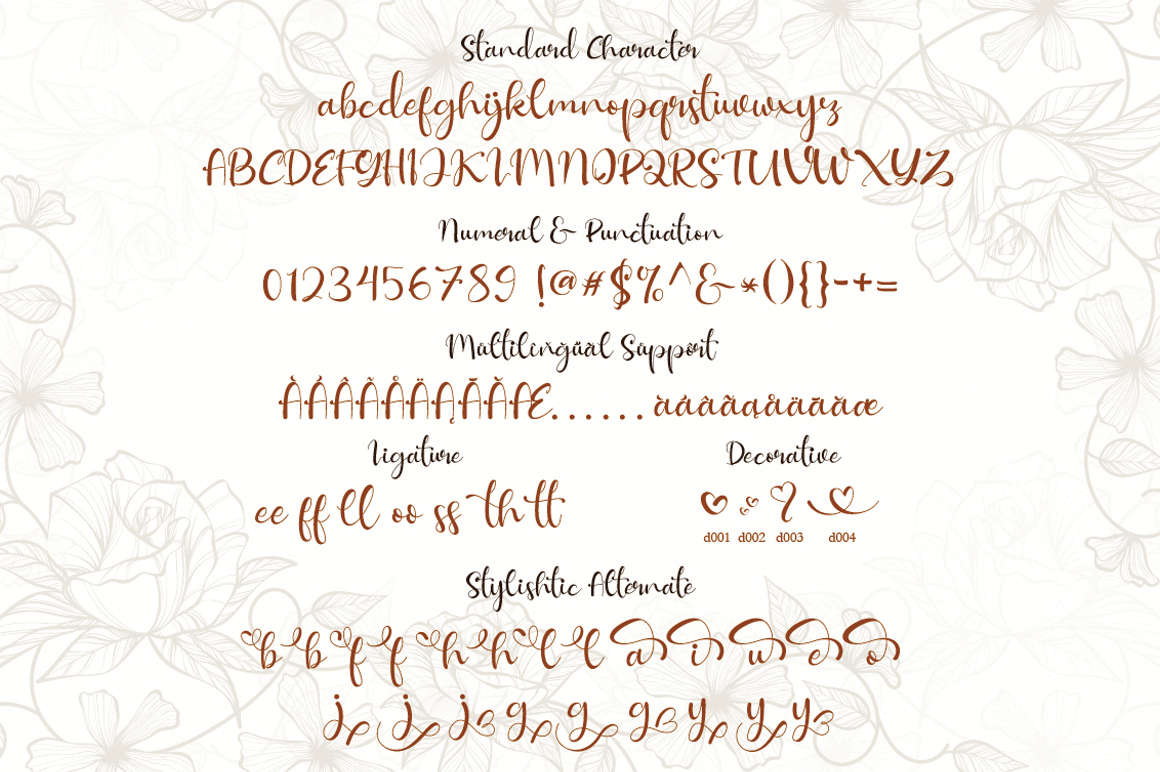 Standard Character
abcdefghijklmnopqrstuvwxyz
ABCDEFGHIJKLMNOPQRSTUVWXYZ
Numeral & Punctuation
0123456789 !@#$%^&*(){}-+=
Mältilîňğüäl Säppôrt
ÀÁÂÃÅÄĄĀĂÆ......àáâãąåäāăæ
Ligature
ee ff ll oo ss th tt
Decorative
d001 d002 d003 d004
Stylishtic Alternate
b b f f h h l l a i u e o
j j j g g g y y y